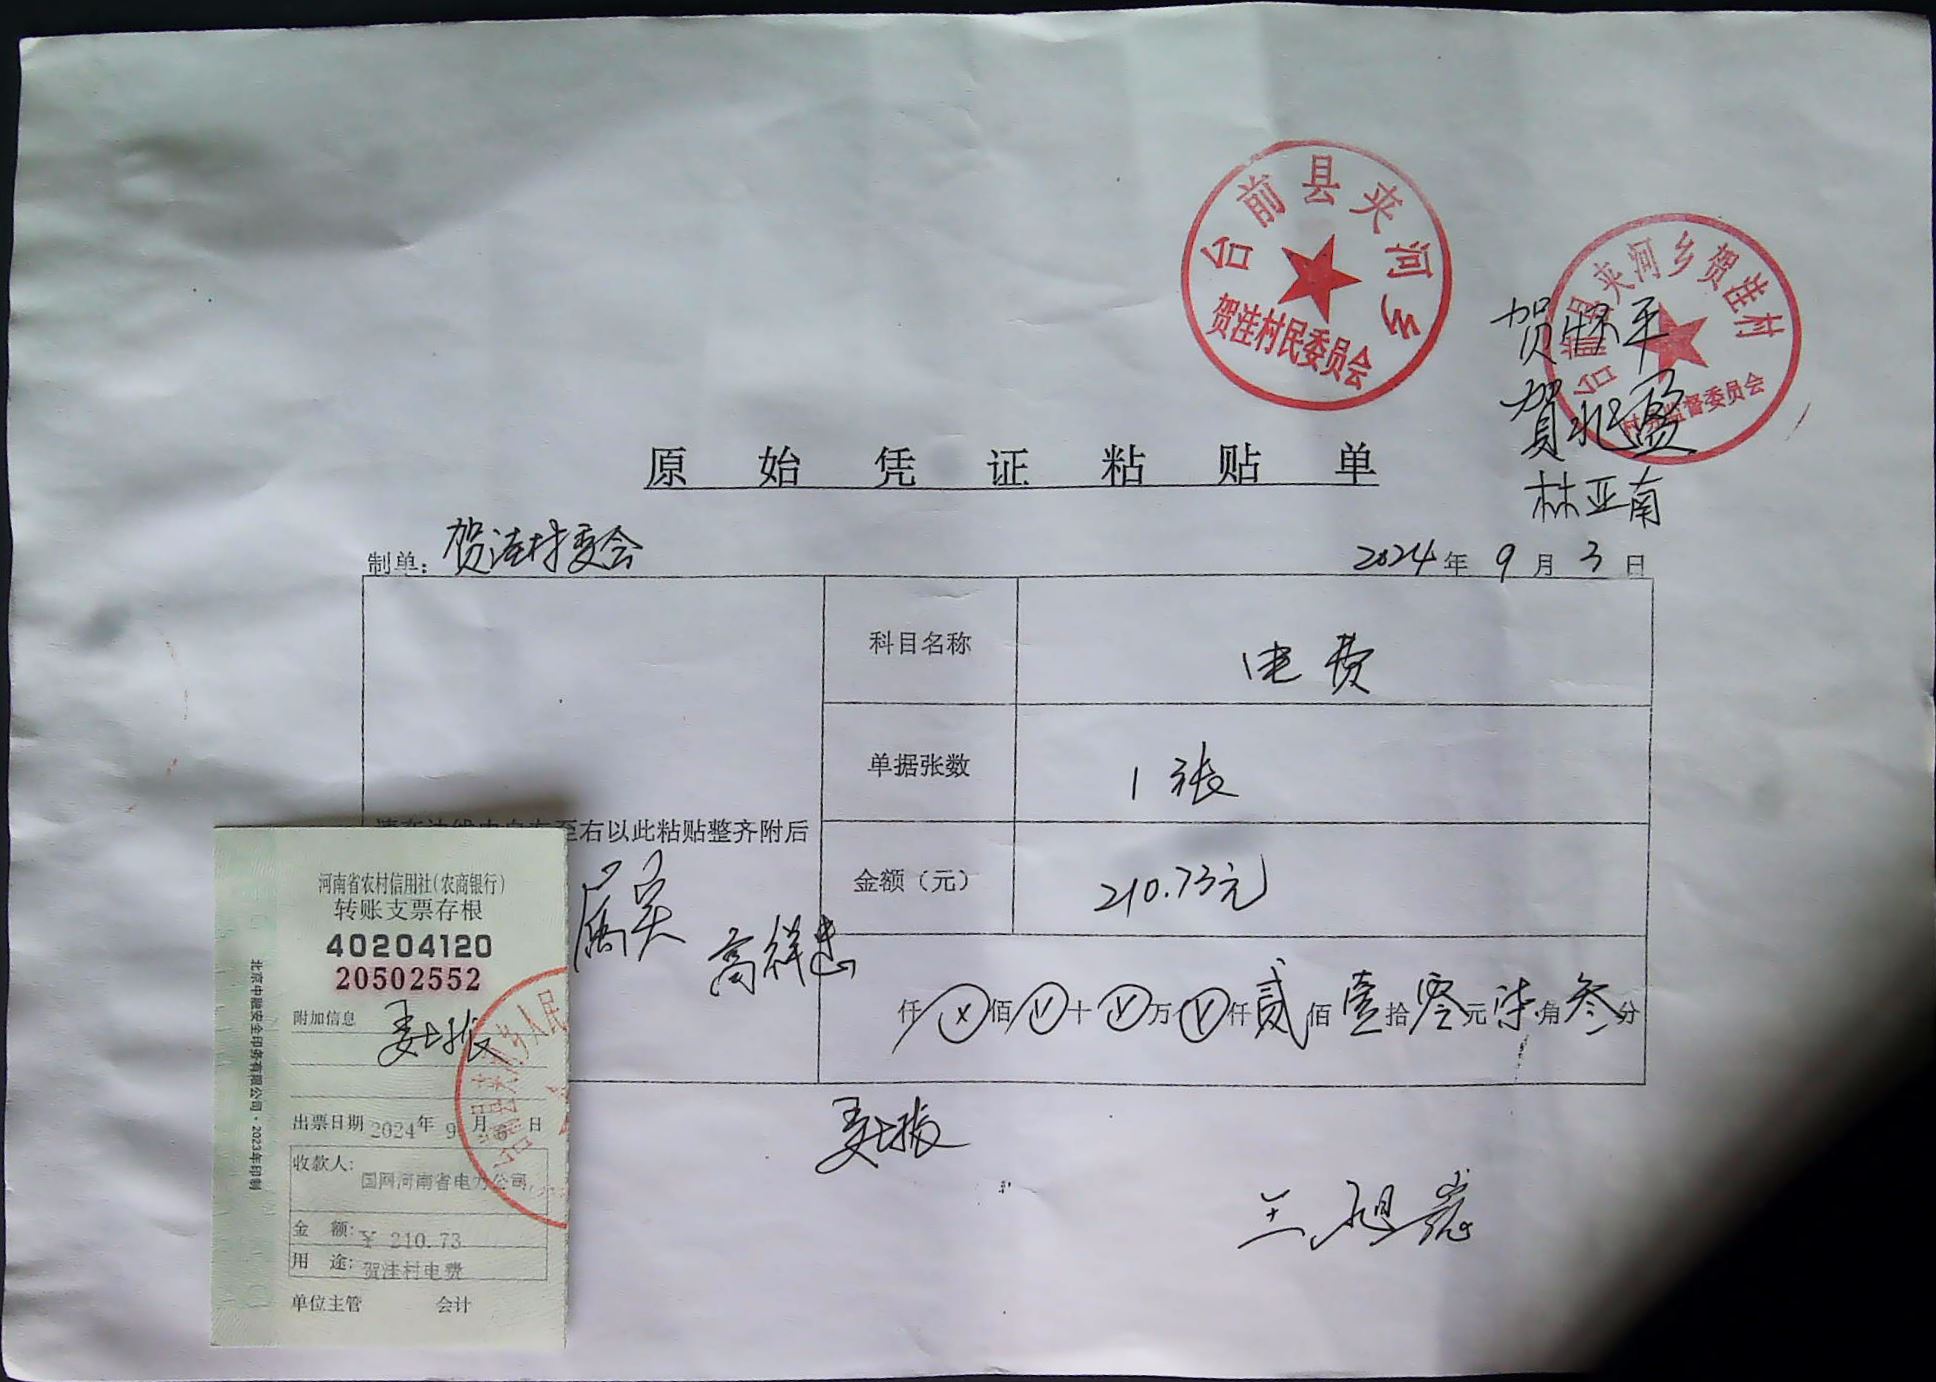 台前县夹河乡
贺洼村民委员会
台前县夹河乡贺洼村
监督委员会
林亚南
原始凭证粘贴单
制单：贺洼村委会
2024年9月3日
科目名称 电费
单据张数 1张
至右以此粘贴整齐附后
金额（元） 210.73元
属实
高祥忠
仟ⓧ佰ⓧ十ⓧ万ⓧ仟贰佰壹拾零元柒角叁分
河南省农村信用社(农商银行)
转账支票存根
40204120
20502552
附加信息
出票日期 2024年9月 日
收款人:
国网河南省电力公司
金 额: ¥ 210.73
用 途: 贺洼村电费
单位主管 会计
北京中融安全印务有限公司·2023年印制